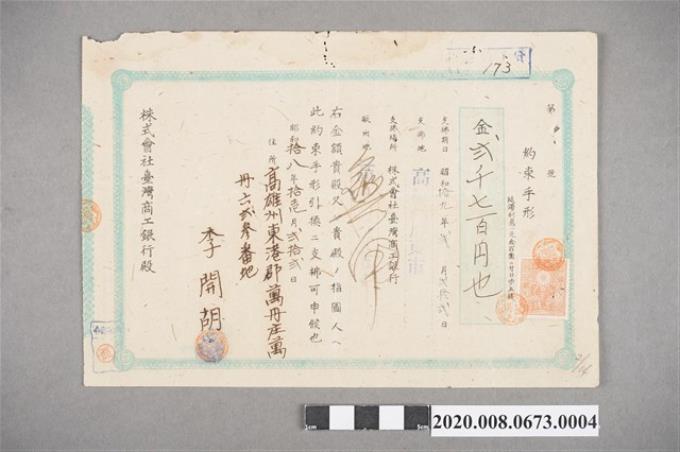 173
第 號
約束手形
金 弐千七百円也
支拂期日 昭和拾九年弐月弐拾弐日
支拂地 高雄市
支拂場所 株式會社臺灣商工銀行
無 効
右金額貴殿又ハ貴殿ノ指圖人ヘ
此約束手形引換ニ支拂可申候也
昭和拾八年拾壱月弐拾弐日
住所 高雄州東港郡萬丹庄萬
丹六弐參番地
李開胡
株式會社臺灣商工銀行殿
2/14
1cm
5cm
2020.008.0673.0004